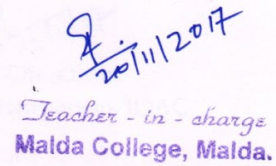 20/11/2017
Teacher - in - charge
Malda College, Malda.